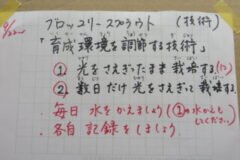 ブロッコリースプラウト (技術)
「育成環境を調節する技術」
① 光をさえぎったまま栽培する。
② 数日だけ光をさえぎって栽培する。
・毎日 水をかえましょう(①の水かえも
してください)
・各自 記録をしましょう。